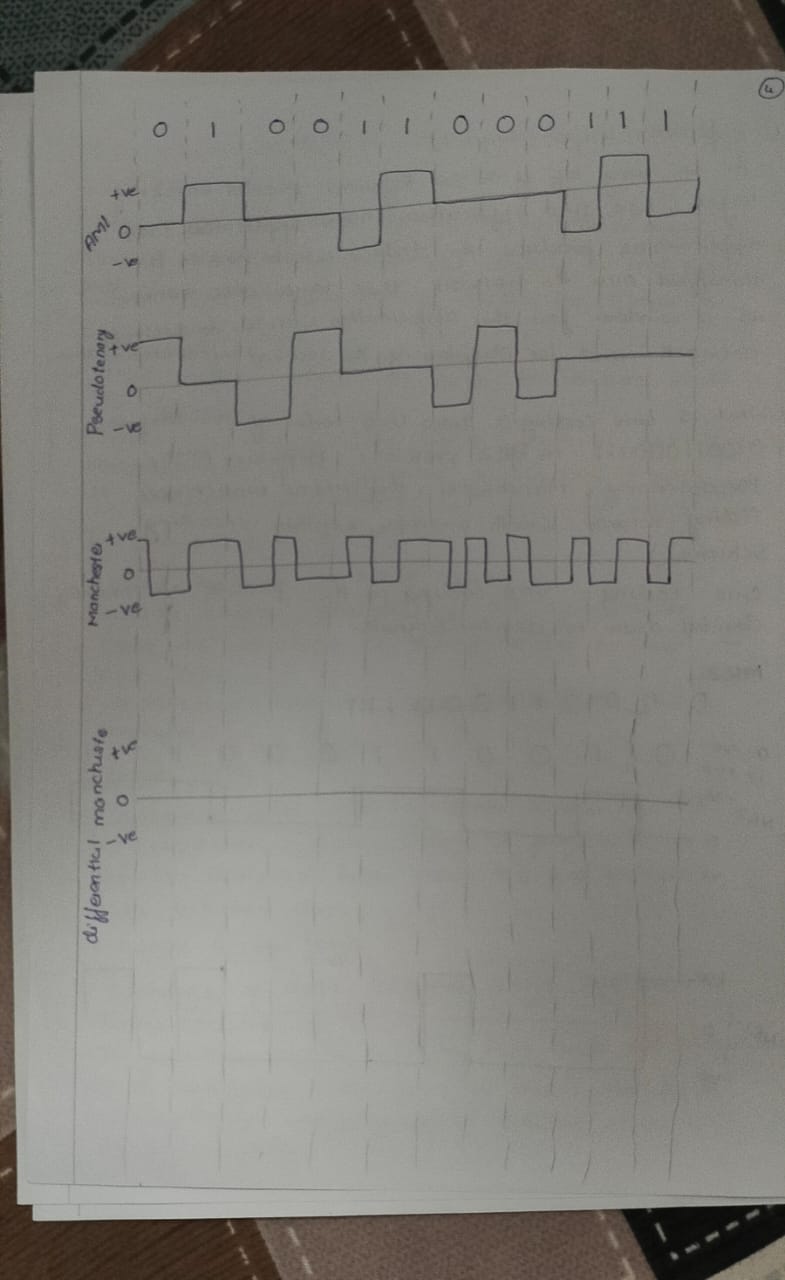 0 1 0 0 1 1 0 0 0 1 1 1
+ve
0
-ve
Pseudotenary
+ve
0
-ve
Manchester
+ve
0
-ve
differential manchuste
+ve
0
-ve